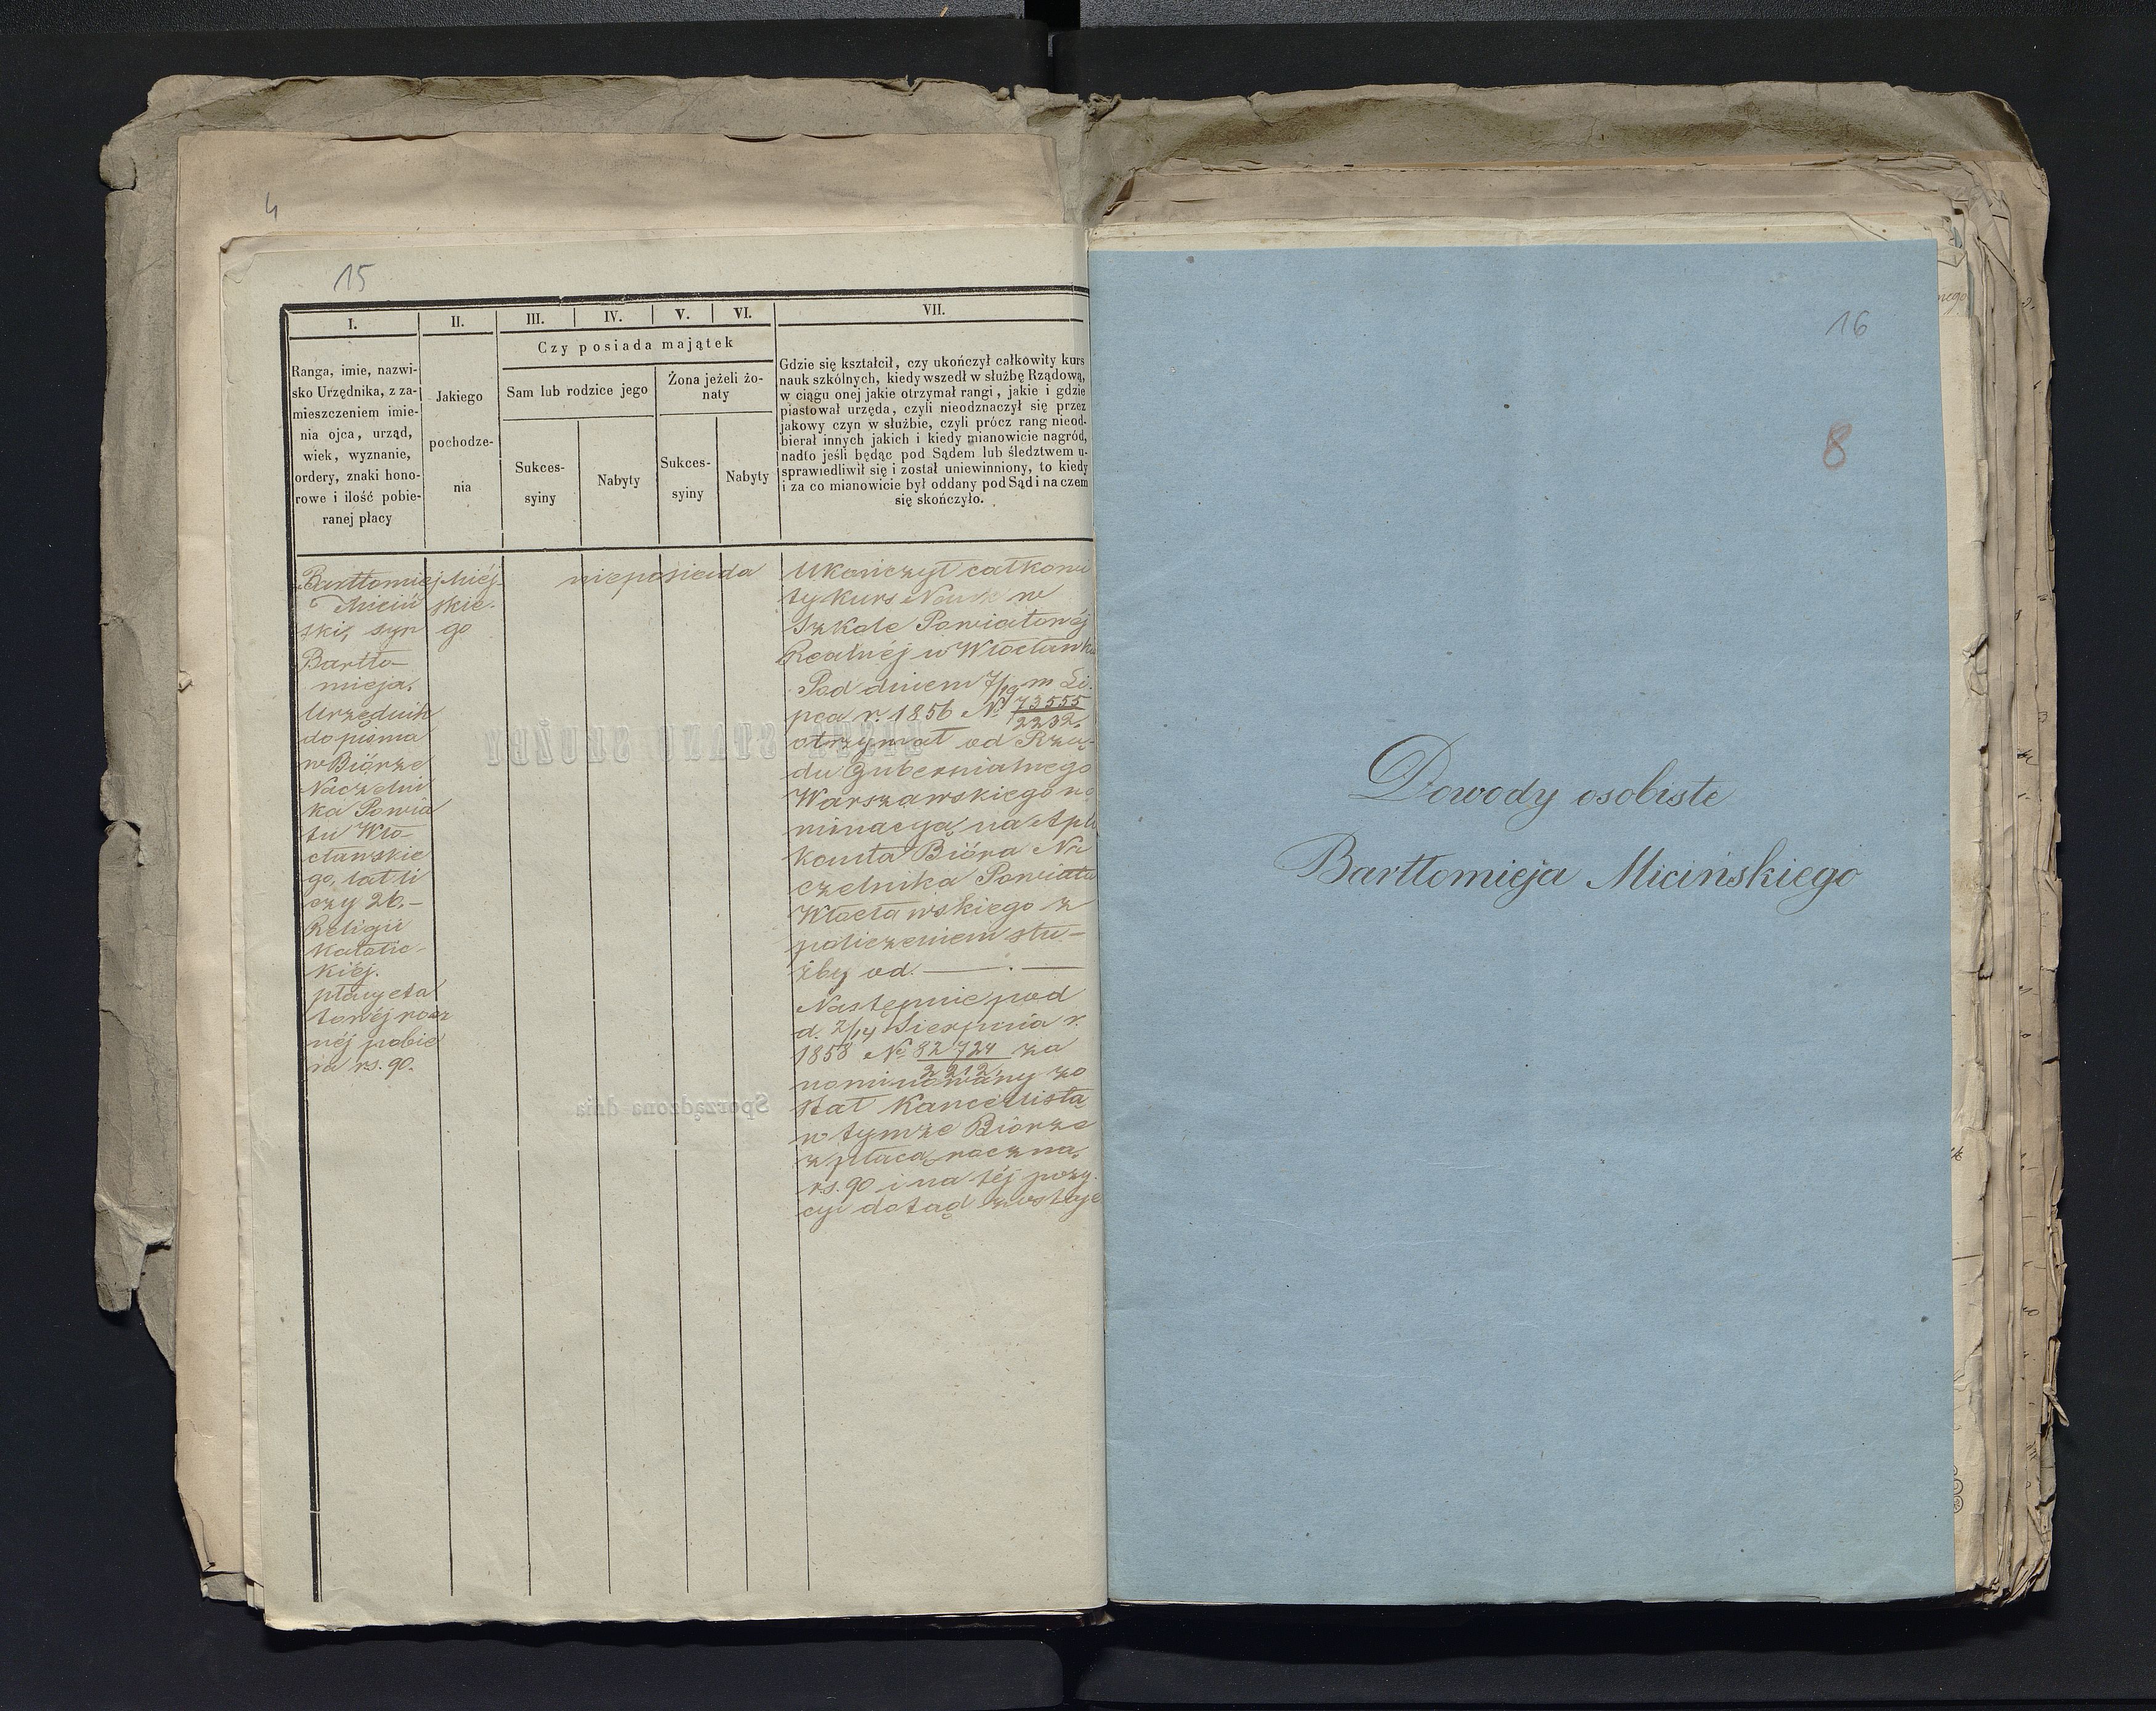 4
15
I.
II.
III.
IV.
V.
VI.
VII.
Ranga, imie, nazwi-
sko Urzędnika, z za-
mieszczeniem imie-
nia ojca, urząd,
wiek, wyznanie,
ordery, znaki hono-
rowe i ilość pobie-
ranej płacy
Jakiego
pochodze-
nia
Czy posiada majątek
Sam lub rodzice jego
Żona jeżeli żo-
naty
Sukces-
syiny
Nabyty
Sukces-
syiny
Nabyty
Gdzie się kształcił, czy ukończył całkowity kurs
nauk szkólnych, kiedy wszedł w służbę Rządową,
w ciągu onej jakie otrzymał rangi, jakie i gdzie
piastował urzęda, czyli nieodznaczył się przez
jakowy czyn w służbie, czyli prócz rang nieod-
bierał innych jakich i kiedy mianowicie nagród,
nadto jeśli będąc pod Sądem lub śledztwem u-
sprawiedliwił się i został uniewinniony, to kiedy
i za co mianowicie był oddany pod Sąd i na czem
się skończyło.
Bartłomiej
Miciń
ski, syn
Bartło-
mieja,
Urzędnik
do pisma
w Biórze
Naczelni
ka Powia
tu Wło-
cławskie
go, lat li
czy 26.-
Religii
Katolic-
kiéj.
płacy eta
towéj rocz
néj pobie
ra rs. 90.
Miéj-
skie-
go
nieposiada
Ukończył całkowi
ty kurs Nauk w
Szkole Powiatowéj
Realnéj w Włocławku
Pod dniem 7/19 m Li-
pca r. 1856 No 73555/2232.
otrzymał od Rzą-
du Gubernialnego
Warszawskiego no
minacyą na Apli
kanta Bióra Na
czelnika Powiatu
Włocławskiego z
policzeniem słu-
żby od. — . —
Następnie pod
d. 2/14 Sierpnia r.
1858 No 82724/2212. za
nominowany zo
stał Kancellistą
w tymże Biórze
z płacą roczną
rs. 90 i na téj pozy-
cyi dotąd zostaje
STANU SŁUŻBY
Sporządzona dnia
16
8
Dowody osobiste
Bartłomieja Micińskiego